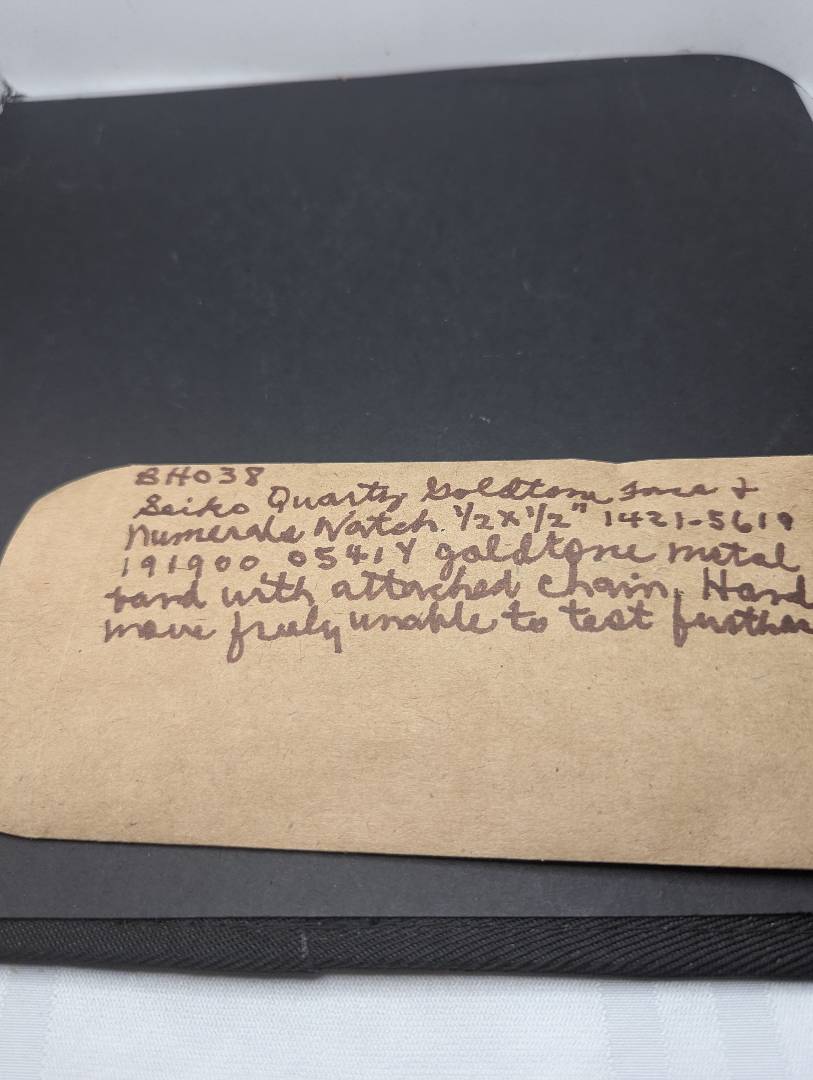 BH038
Seiko Quartz Goldtone Face &
Numerals Watch. 1/2 x 1/2" 1421-5619
191900 05414 goldtone metal
band with attached chain. Hand
move freely unable to test further